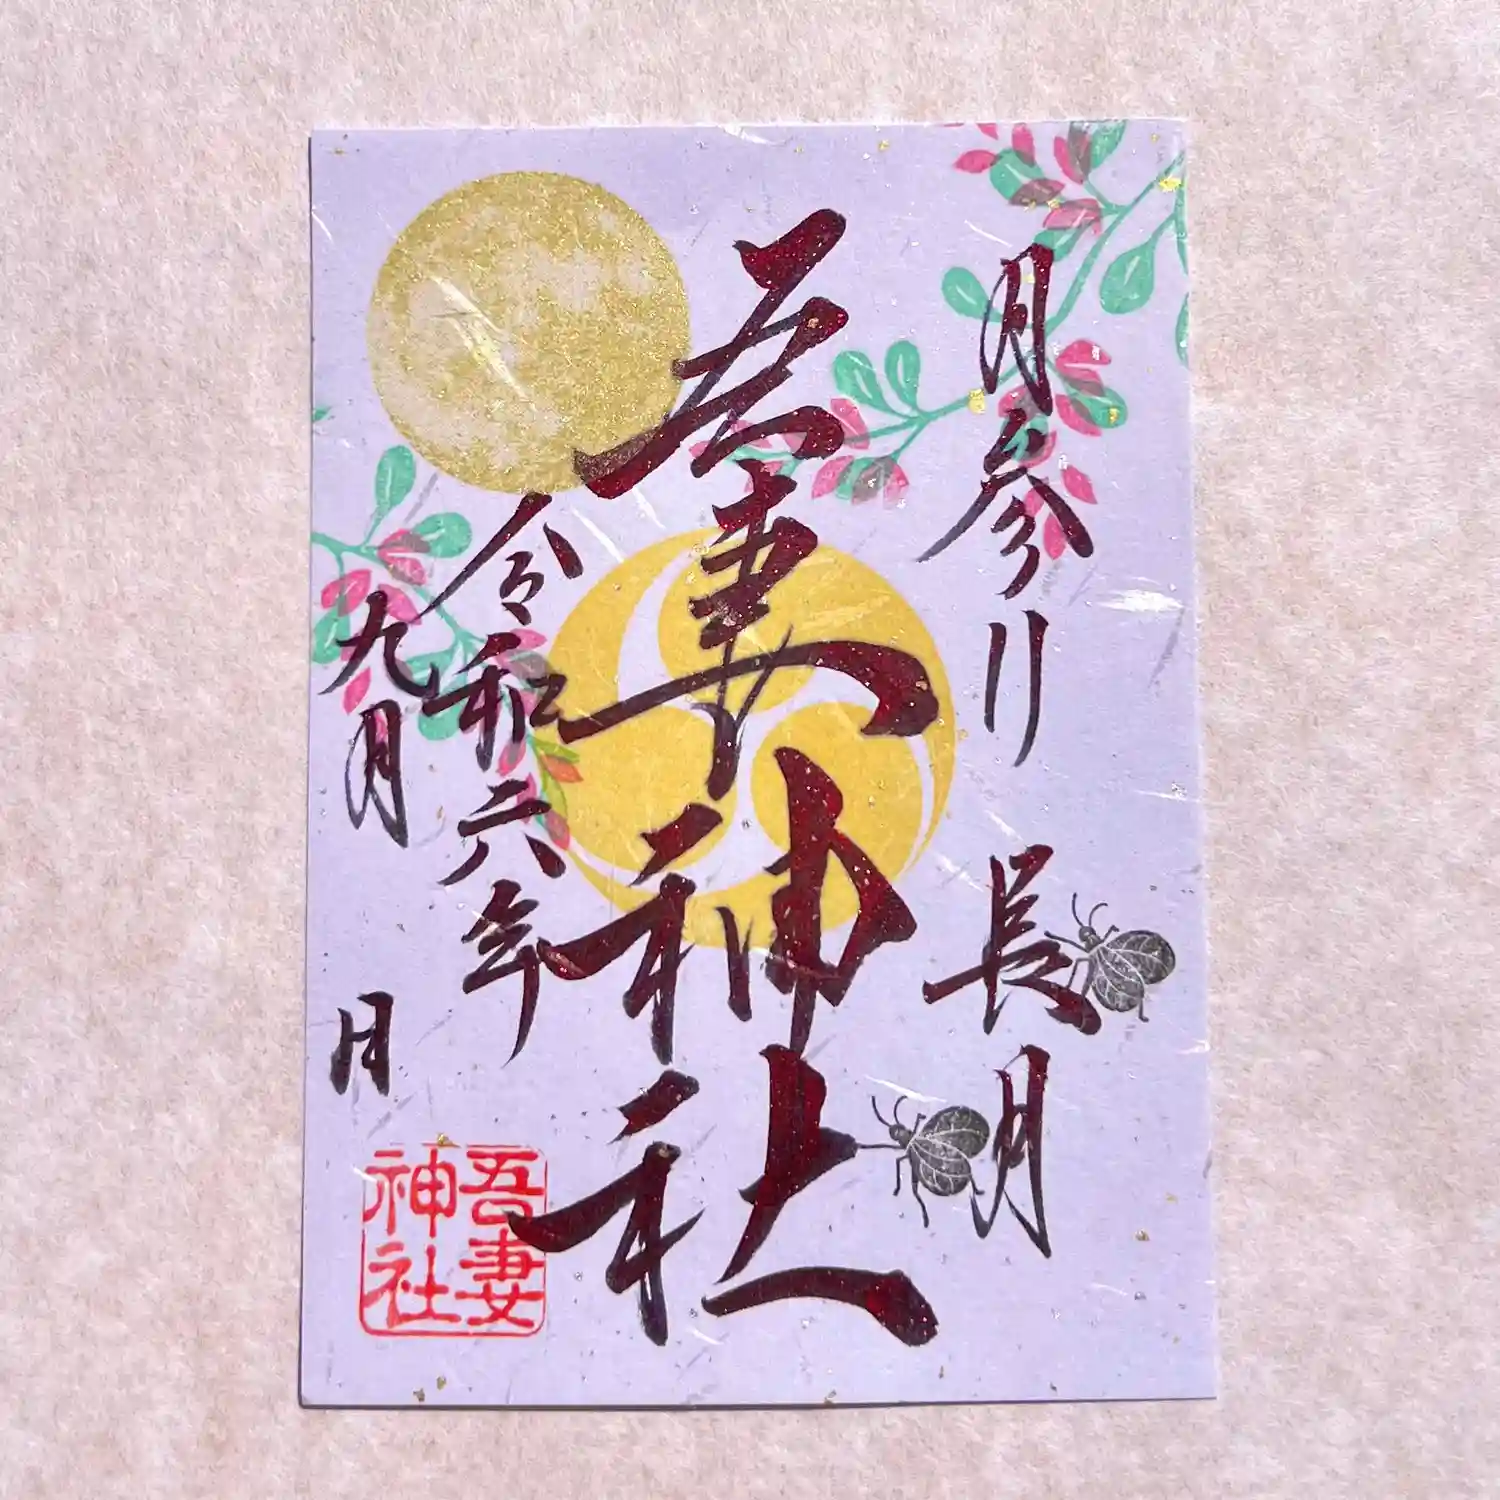 月参り
長月
吾妻神社
令和六年
九月
日
吾妻
神社